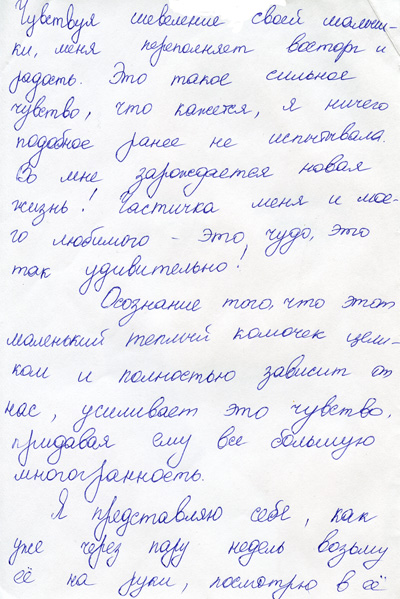 Чувствуя шевеление своей малыш-
ки, меня переполняет восторг и
радость. Это такое сильное
чувство, что кажется, я ничего
подобное ранее не испытывала.
Во мне зарождается новая
жизнь! Частичка меня и мое-
го любимого – это чудо, это
так удивительно!
Осознание того, что этот
маленький теплый комочек цели-
ком и полностью зависит от
нас, усиливает это чувство,
придавая ему все большую
многогранность.
Я представляю себе, как
уже через пару недель возьму
её на руки, посмотрю в её